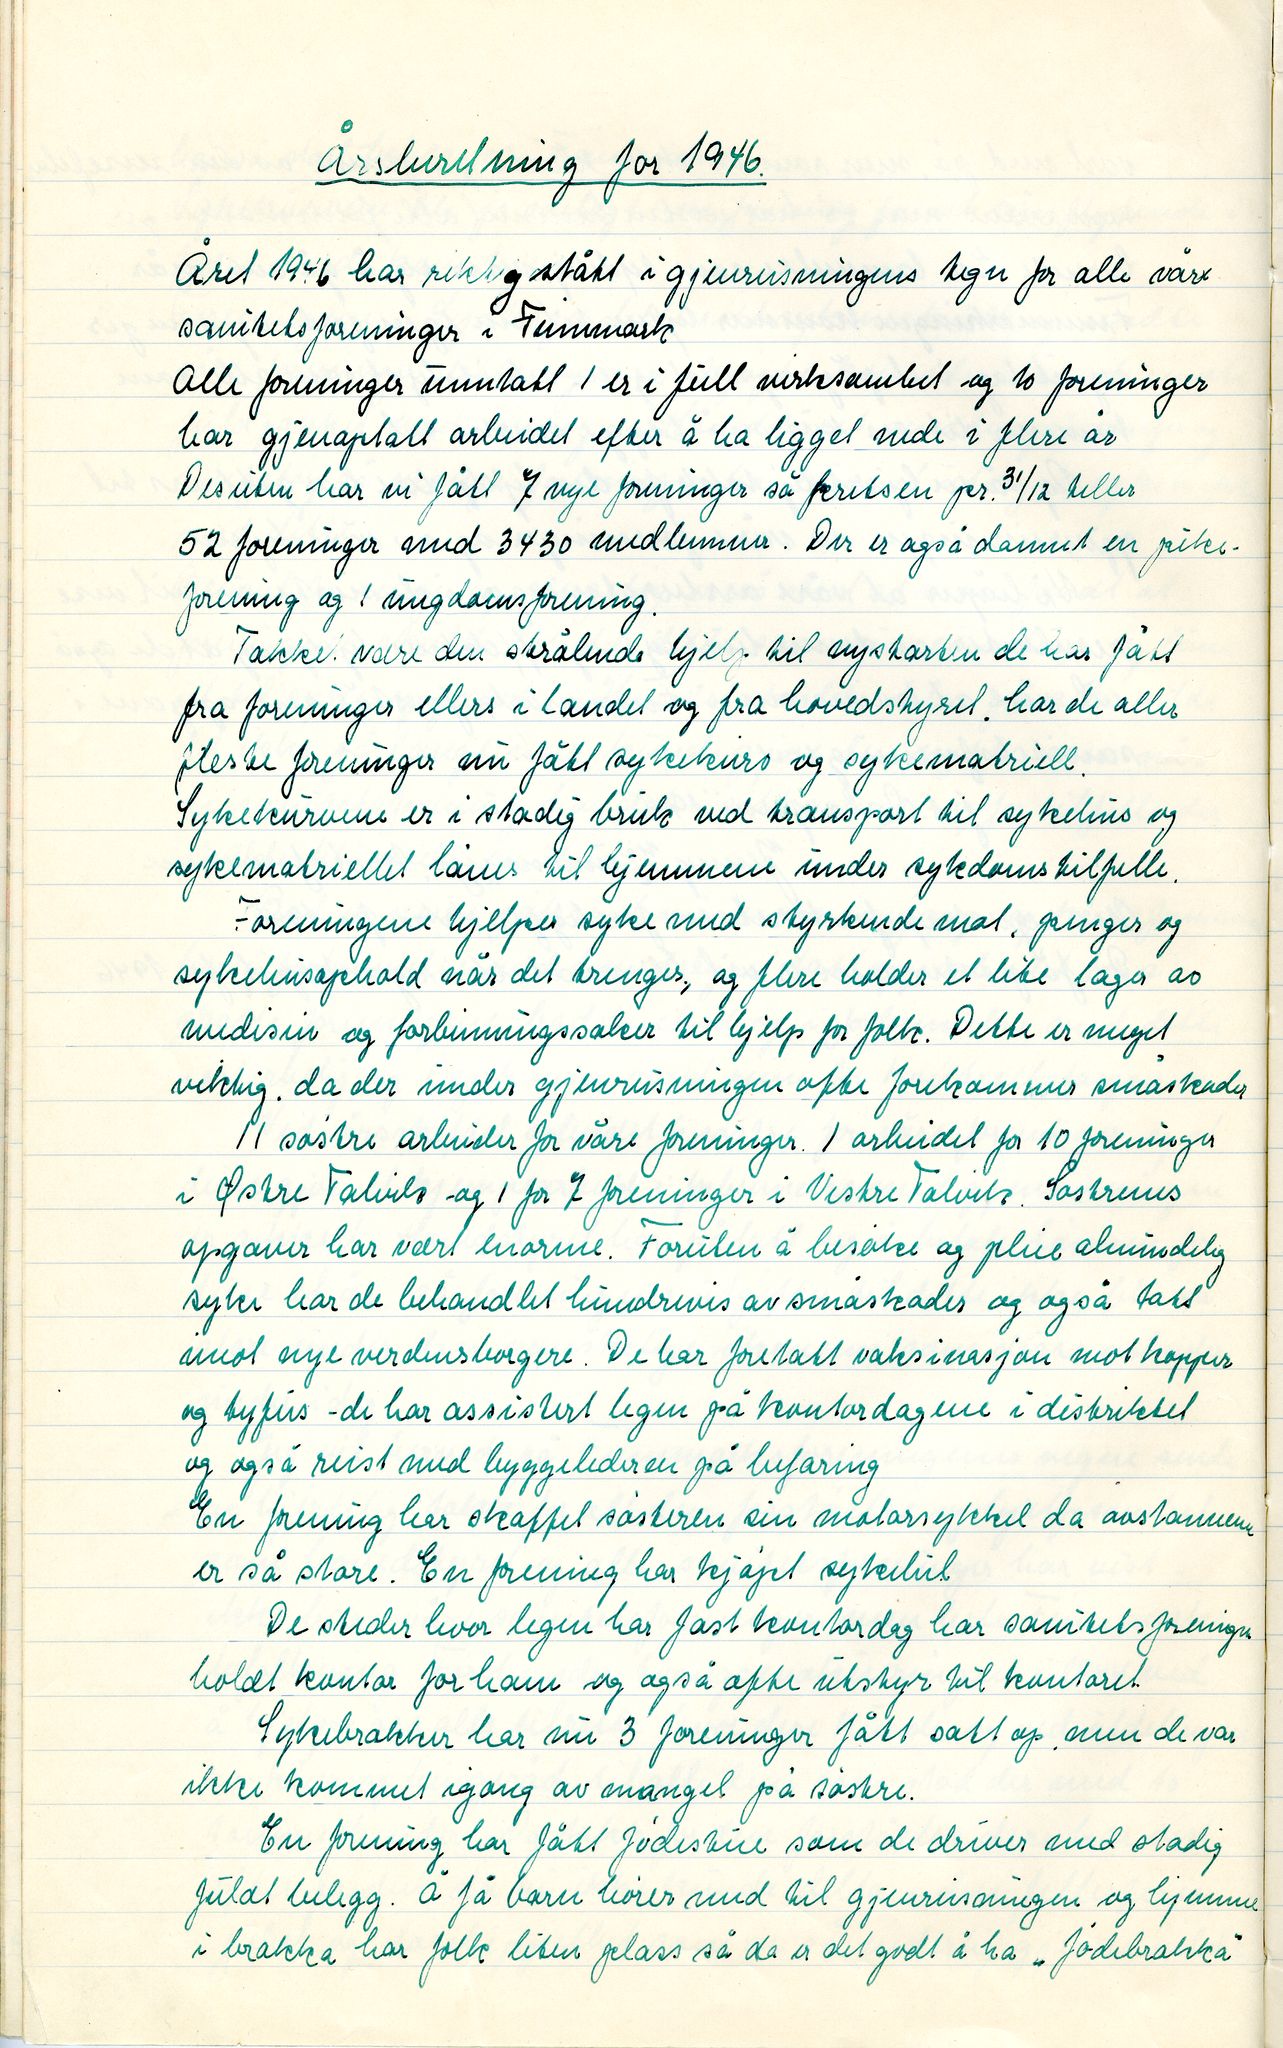 Årsberetning for 1946.
Året 1946 har riktig stått i gjenreisningens tegn for alle våre
sanitetsforeninger i Finnmark
Alle foreninger unntatt 1 er i full virksomhet og to foreninger
har gjenoptatt arbeidet efter å ha ligget nede i flere år
Desuten har vi fått 7 nye foreninger så kretsen pr. 31/12 teller
52 foreninger med 3430 medlemmer. Der er også dannet en pike-
forening og 1 ungdomsforening.
Takke være den strålende hjelp til nystarten de har fått
fra foreninger ellers i landet og fra hovedstyret, har de aller
fleste foreninger nu fått sykekurv og sykematriell.
Sykekurvene er i stadig bruk ved transport til sykehus og
sykematriellet lånes til hjemmene under sykdomstilfelle.
Foreningene hjelper syke med styrkende mat, penger og
sykehusophold når det trenges, og flere holder et lite lager av
medisin og forbinningssaker til hjelp for folk. Dette er meget
viktig, da der under gjenreisningen ofte forekommer småskader
11 søstre arbeider for våre foreninger. 1 arbeidet for 10 foreninger
i Østre Talvik og 1 for 7 foreninger i Vestre Talvik. Søstrenes
opgaver har vært enorme. Foruten å besøke og pleie almindelig
syke har de behandlet hundrevis av småskader og også tatt
imot nye verdensborgere. De har foretatt vaksinasjon mot kopper
og tyfus - de har assistert legen på kontordagene i distriktet
og også reist med byggelederen på befaring
En forening har skaffet søsteren sin motorsykkel da avstannene
er så store. En forening har kjøpt sykebil.
De steder hvor legen har fast kontordag har sanitetsforeningen
holdt kontor for ham og også ofte utstyr til kontoret.
Sykebrakker har nu 3 foreninger fått satt op, men de var
ikke kommet igang av mangel på søstre.
En forening har fått fødestue som de driver med stadig
fuldt belegg. Å få barn hører med til gjenreisningen og hjemme
i brakka har folk liten plass så da er det godt å ha „fødebrakka"